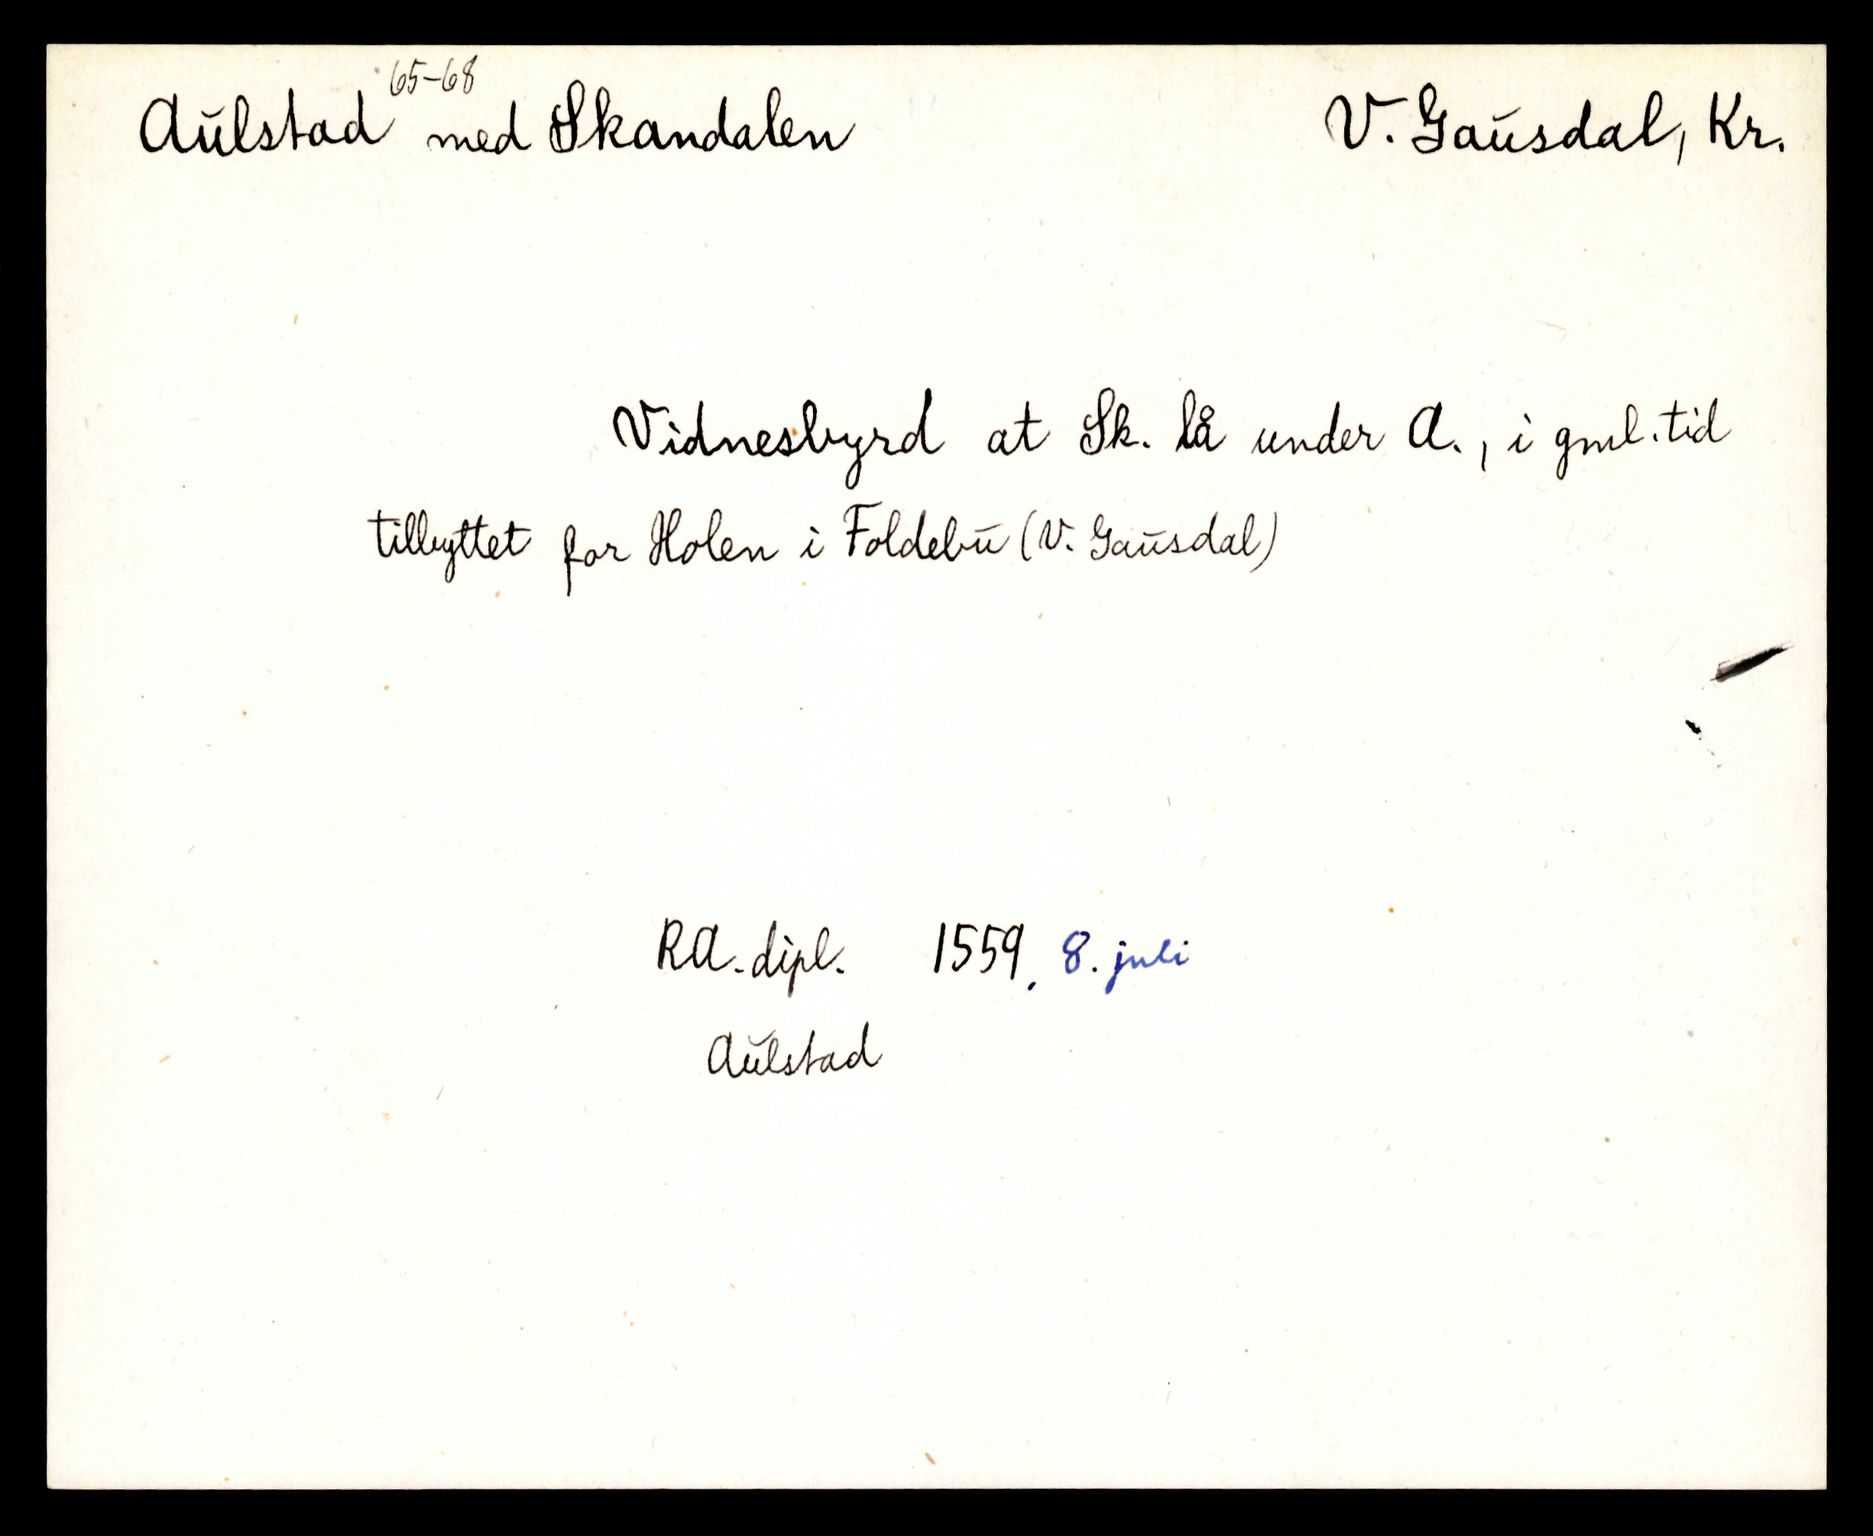 65-68
Aulstad med Skandalen V. Gausdal, Kr.
Vidnesbyrd at Sk. lå under A., i gml. tid
tilbyttet for Holen i Foldebu (V. Gausdal)
RA. dipl. 1559, 8. juli
Aulstad